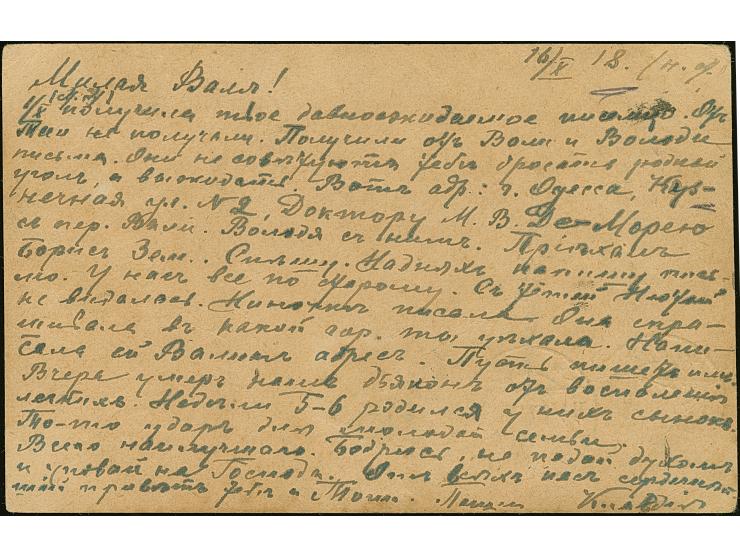 16/X 18. (н. с.)
Милая Валя!
1/X получила твое давноожидаемое письмо. Отъ
Таи не получали. Получили отъ Воли и Володи
письма. Они не совѣтуютъ тебѣ бросать родной
уголъ, а выжидать. Вотъ адр.: г. Одесса, Куз-
нечная ул. №2, Доктору М. В. Де-Морею
съ пер. Вали. Володя съ нимъ. Пріѣхалъ
Борисъ Зем.. Спѣшу. Надняхъ напишу пись-
мо. У насъ все по старому. Съ тетей
не видалась. Ниночкѣ писала. Она спра-
шивала въ какой гор. ты уѣхала. Напи-
сала ей Валинъ адресъ. Пусть пишетъ
Вчера умеръ нашъ дьяконъ отъ воспаленія
легкихъ. Недѣли 5-6 родился у нихъ сынокъ.
То-то ударъ для молодой семьи.
Всего наилучшаго. Бодрись, не падай духомъ
и уповай на Господа. Отъ всѣхъ насъ сердечный
привѣтъ тебѣ и